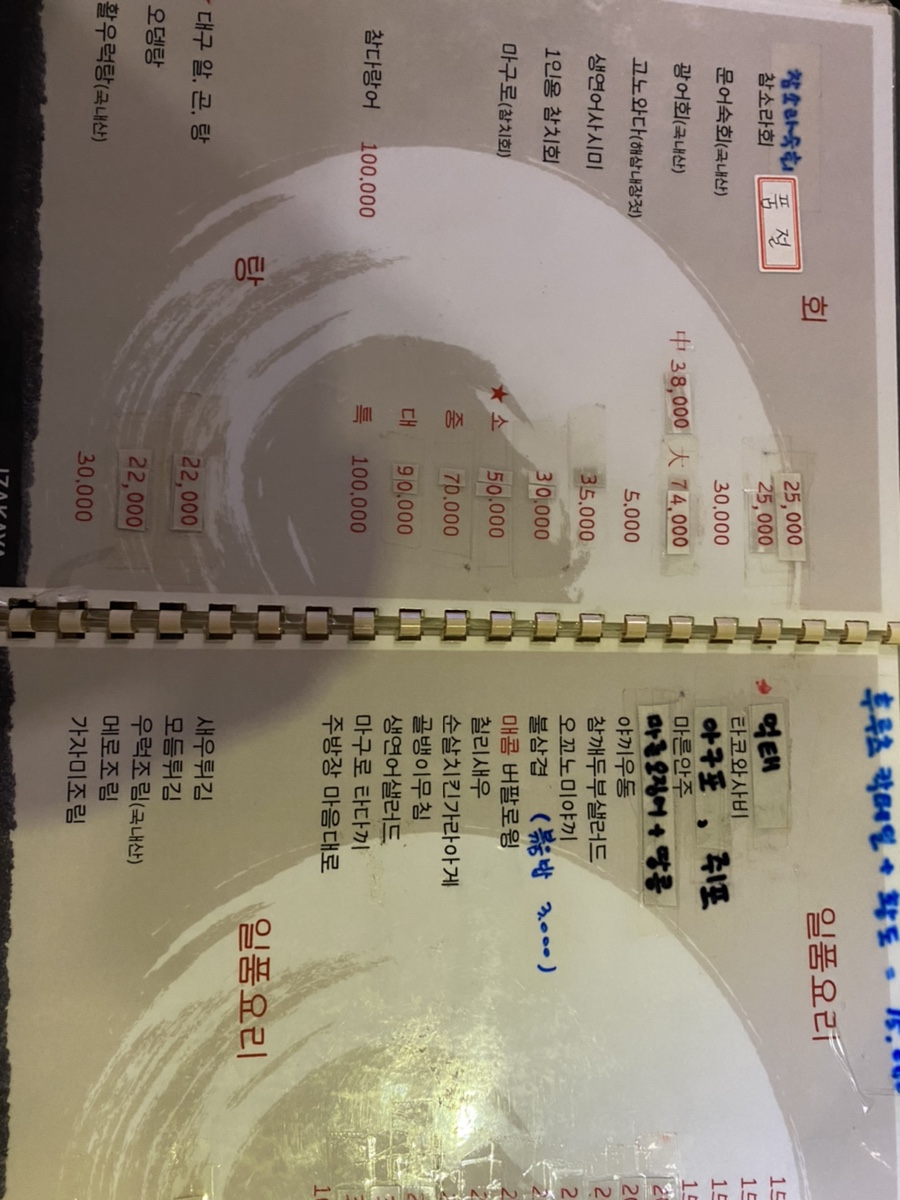 회
참소라숙회 25,000
참소라회 품절 25,000
문어숙회(국내산) 30,000
광어회(국내산) 中 38,000 大 74,000
고노와다(해삼내장젓) 5,000
생연어사시미 35,000
1인용 참치회 30,000
마구로(참치회) ★ 소 50,000
중 70,000
대 90,000
참다랑어 100,000 특 100,000
탕
대구 알, 곤, 탕 22,000
오뎅탕 22,000
활우럭탕(국내산) 30,000
IZAKAYA
후루츠 칵테일 + 황도 =
일품요리
먹태
타코와사비
아구포, 쥐포
마른안주
마른오징어 + 땅콩
야끼우동
참깨두부샐러드
오꼬노미야끼
불삼겹 (볶음밥 3,000)
매콤 버팔로윙
칠리새우
순살치킨가라아게
골뱅이무침
생연어샐러드
마구로 타다끼
주방장 마음대로
일품요리
새우튀김
모듬튀김
우럭조림(국내산)
메로조림
가자미조림